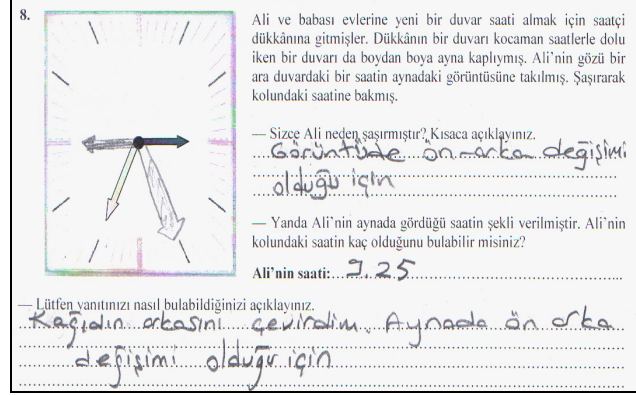 8.
Ali ve babası evlerine yeni bir duvar saati almak için saatçi
dükkânına gitmişler. Dükkânın bir duvarı kocaman saatlerle dolu
iken bir duvarı da boydan boya ayna kaplıymış. Ali'nin gözü bir
ara duvardaki bir saatin aynadaki görüntüsüne takılmış. Şaşırarak
kolundaki saatine bakmış.
— Sizce Ali neden şaşırmıştır? Kısaca açıklayınız.
Görüntüde ön-arka değişimi
olduğu için
— Yanda Ali'nin aynada gördüğü saatin şekli verilmiştir. Ali'nin
kolundaki saatin kaç olduğunu bulabilir misiniz?
Ali'nin saati: 9.25
— Lütfen yanıtınızı nasıl bulabildiğinizi açıklayınız.
Kağıdın arkasını çevirdim. Aynada ön arka
değişimi olduğu için